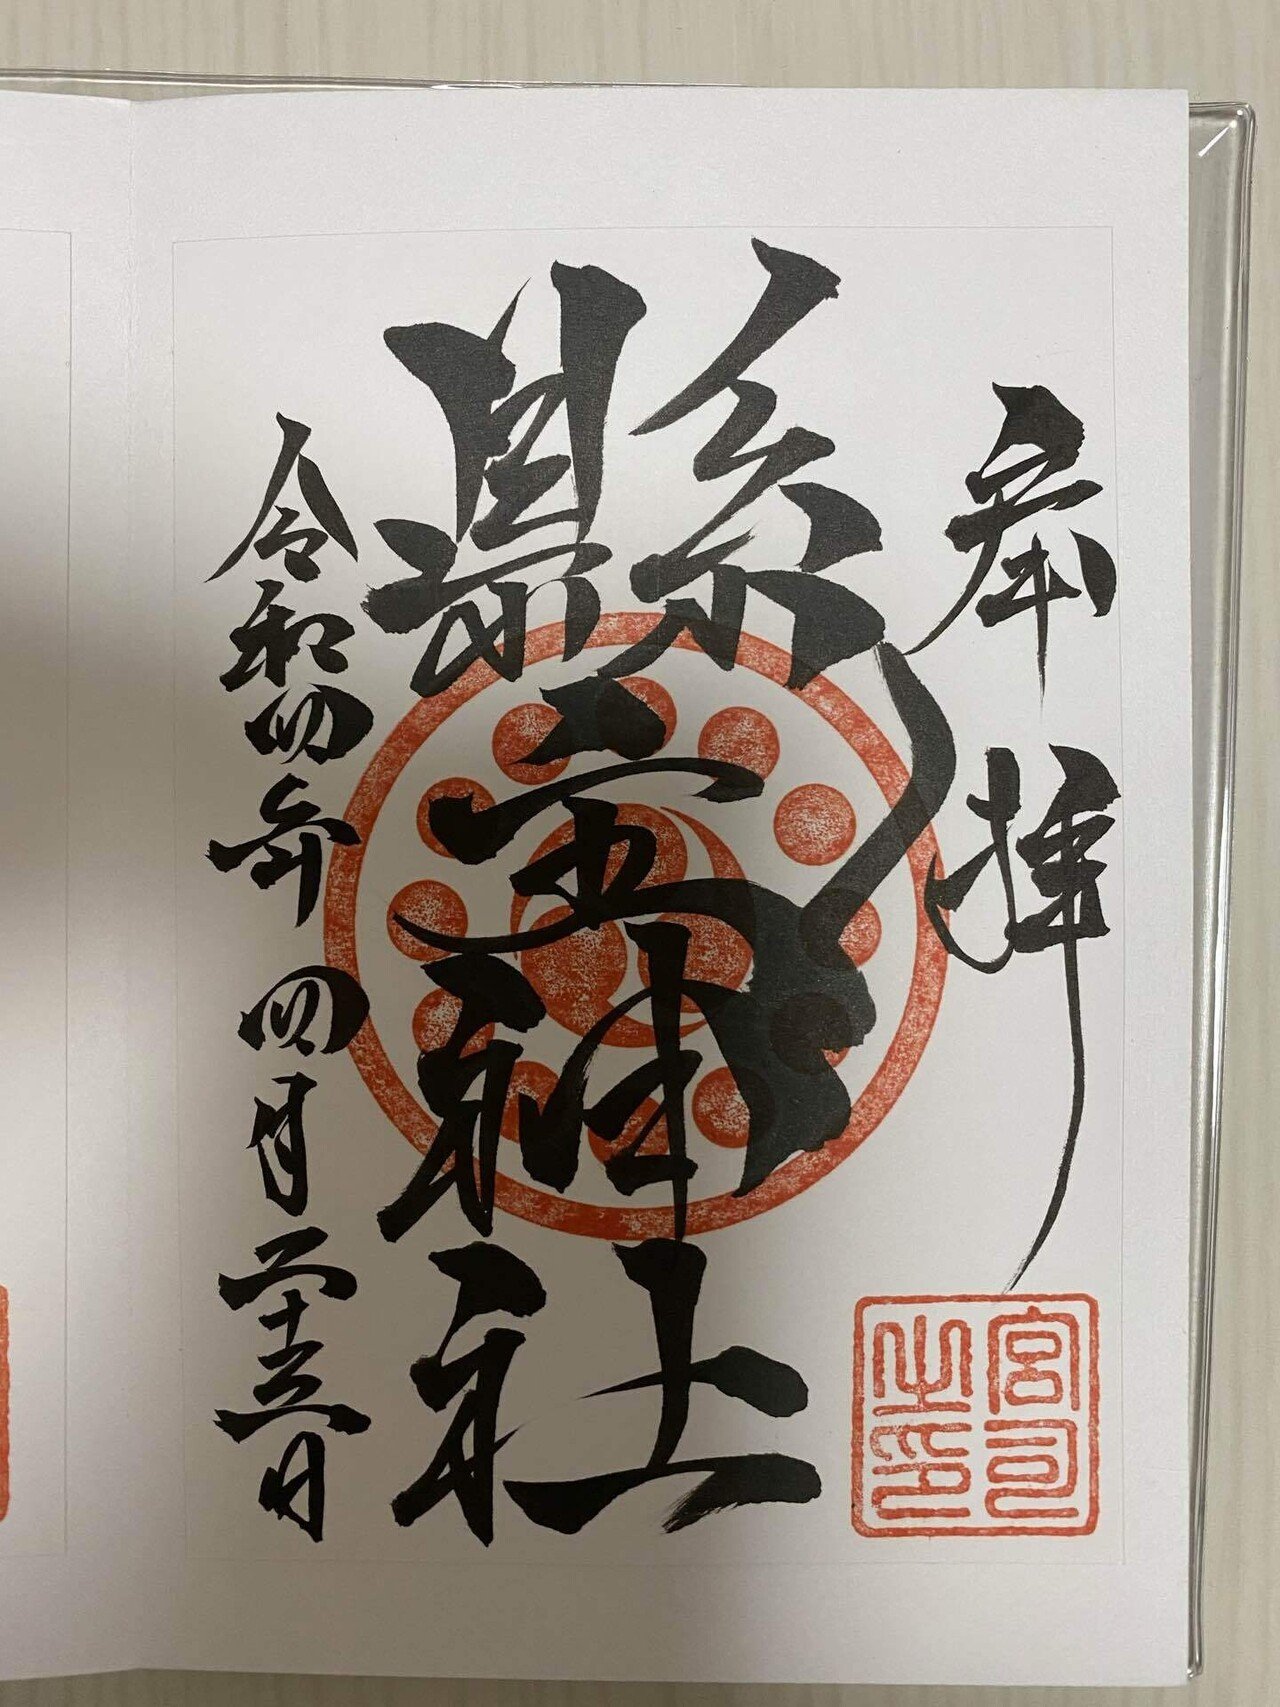 奉拝
縣主神社
令和四年四月二十三日
宮司之印